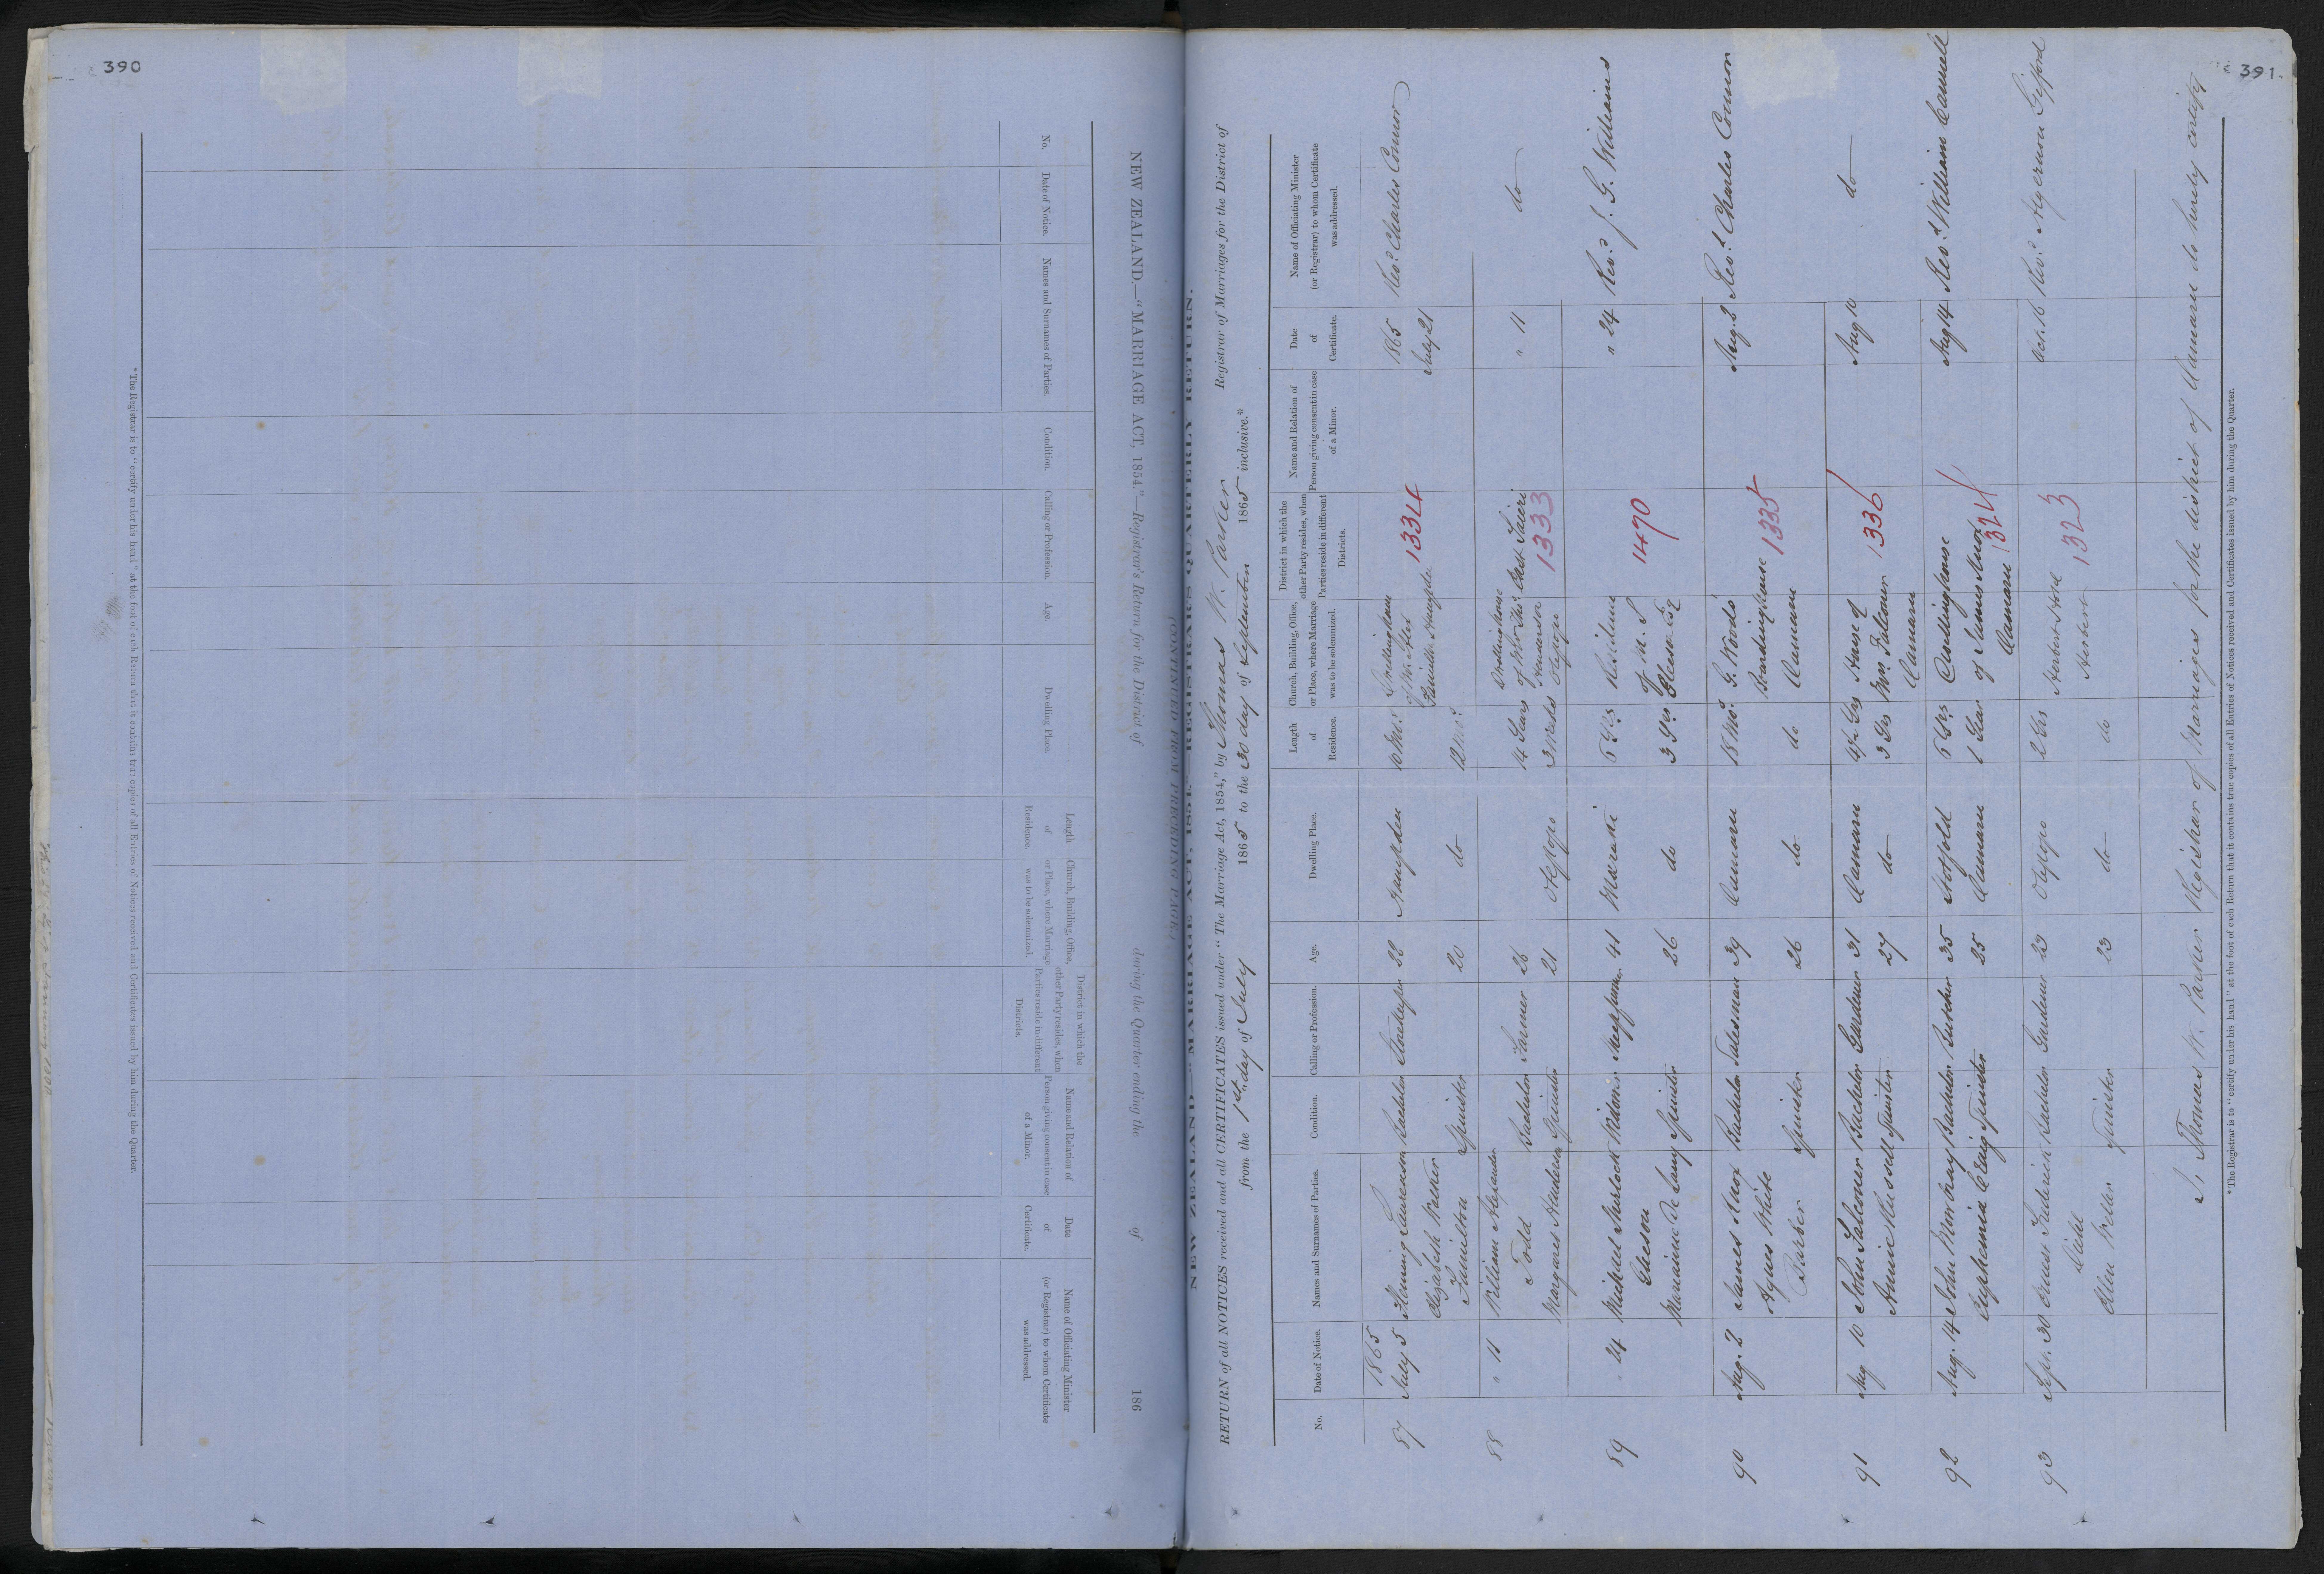 390
NEW ZEALAND.—"MARRIAGE ACT, 1854."—Registrar's Return for the District of during the Quarter ending the of 186
No.
Date of Notice.
Names and Surnames of Parties.
Condition.
Calling or Profession.
Age.
Dwelling Place.
Length of Residence.
Church, Building, Office, or Place, where Marriage was to be solemnized.
District in which the other Party resides, when Parties reside in different Districts.
Name and Relation of Person giving consent in case of a Minor.
Date of Certificate.
Name of Officiating Minister (or Registrar) to whom Certificate was addressed.
* The Registrar is to "certify under his hand" at the foot of each Return that it contains true copies of all Entries of Notices received and Certificates issued by him during the Quarter.
391
(CONTINUED FROM PRECEDING PAGE.)
NEW ZEALAND—"MARRIAGE ACT, 1854."—REGISTRAR'S QUARTERLY RETURN.
RETURN of all NOTICES received and all CERTIFICATES issued under "The Marriage Act, 1854," by Thomas W. Parker Registrar of Marriages for the District of
from the 1st day of July 1865 to the 30 day of September 1865 inclusive.*
No.
Date of Notice.
Names and Surnames of Parties.
Condition.
Calling or Profession.
Age.
Dwelling Place.
Length of Residence.
Church, Building, Office, or Place, where Marriage was to be solemnized.
District in which the other Party resides, when Parties reside in different Districts.
Name and Relation of Person giving consent in case of a Minor.
Date of Certificate.
Name of Officiating Minister (or Registrar) to whom Certificate was addressed.
1865 1865
87 July 5 Laurenson Bachelor 22 Hampden 10 Mos. 1334 July 21 Revd. Charles Connor
Elizabeth
Hamilton Spinster 20 do 12 Mos. Hampden
88 " 11 William Alexander Todd Bachelor Farmer 26 14 Years Dwellinghouse of Mr Thos. Henderson Otepopo East Taieri 1333 " 11 do
Margaret Henderson Spinster 21 Otepopo 3 Weeks
89 " 24 Michael Gleeson Widower 41 Maraki 5 Yrs Residence of M. S. Gleeson Esq 1470 " 24 Revd. J. G. Williams
Marianne De Lacy Spinster 26 do 3 Yrs
90 Aug. 2 James Bachelor Salesman 39 Oamaru 18 Mos. G. Woods' Boardinghouse Oamaru 1335 Aug. 2 Revd. Charles Connor
Agnes White Barber Spinster 26 do do
91 Aug 10 John Falconer Bachelor Gardener 31 Oamaru 4½ Yrs House of Mrs. Falconer Oamaru 1336 Aug 10 do
Annie Spinster 27 do 3 Yrs
92 Aug. 14 John Bachelor Butcher 35 5 Yrs Dwellinghouse of James Oamaru 1324 Aug 14 Revd. William Cannell
Euphemia Craig Spinster 25 Oamaru 1 Year
93 Sepr. 30 Frederick Diehl Bachelor Gardener 23 Otepopo 2 Yrs Herbert 1323 Oct. 16 Revd. Algernon Gifford
Ellen Spinster 23 do do
I, Thomas W. Parker Registrar of Marriages for the district of Oamaru do hereby certify
* The Registrar is to "certify under his hand" at the foot of each Return that it contains true copies of all Entries of Notices received and Certificates issued by him during the Quarter.